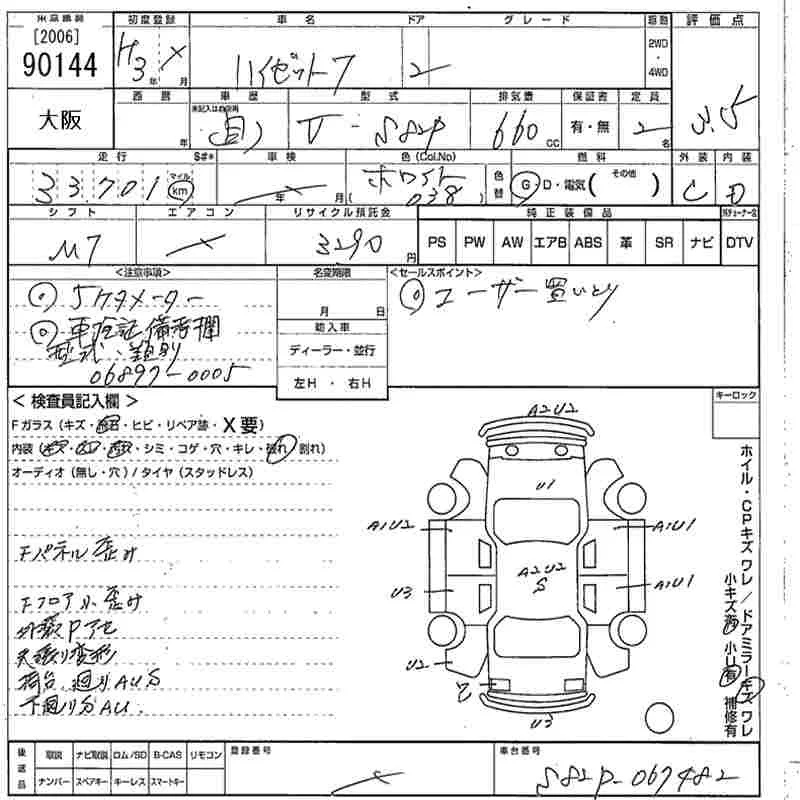 [2006]
90144
大阪
初度登録
H3年 月
車名
ハイゼット
ドア
2
グレード
駆動
2WD
・
4WD
評価点
3.5
西暦
年
車歴
未記入は自家用
自
型式
V-S82P
排気量
660 CC
保証書
有・無
定員
2名
走行 S#*
33,701
マイル
km
車検
年 月
色(Col.No)
ホワイト
(038)
色替
燃料
G・D・電気( その他 )
外装
C
内装
D
シフト
M7
エアコン
リサイクル預託金
3290円
純正装備品
PS PW AW エアB ABS 革 SR ナビ
DTV
<注意事項>
5ケタメーター
車検証備考欄
型式・類別
06897-0005
名変期限
月 日
輸入車
ディーラー・並行
左H ・ 右H
<セールスポイント>
ユーザー買いとり
< 検査員記入欄 >
Fガラス(キズ・ ・ヒビ・リペア跡・X要)
内装( ・ ・ ・シミ・コゲ・穴・キレ・張れ・割れ)
オーディオ(無し・穴)/タイヤ(スタッドレス)
Fパネル歪み
Fフロア小歪み
外装Pアセ
天張り変形
荷台廻りAUS
下廻り分AU.
キーロック
A2U2
U1
A1U2
A1U1
A2U2
S
U3
A1U1
U2
U3
ホイル・CPキズ ワレ/ドアミラーキズ ワレ
小キズ有 小U有 補修有
後送品
取説 ナビ取説 ロム/SD B-CAS リモコン
ナンバー スペアキー キーレス スマートキー
登録番号
車台番号
S82P-067482